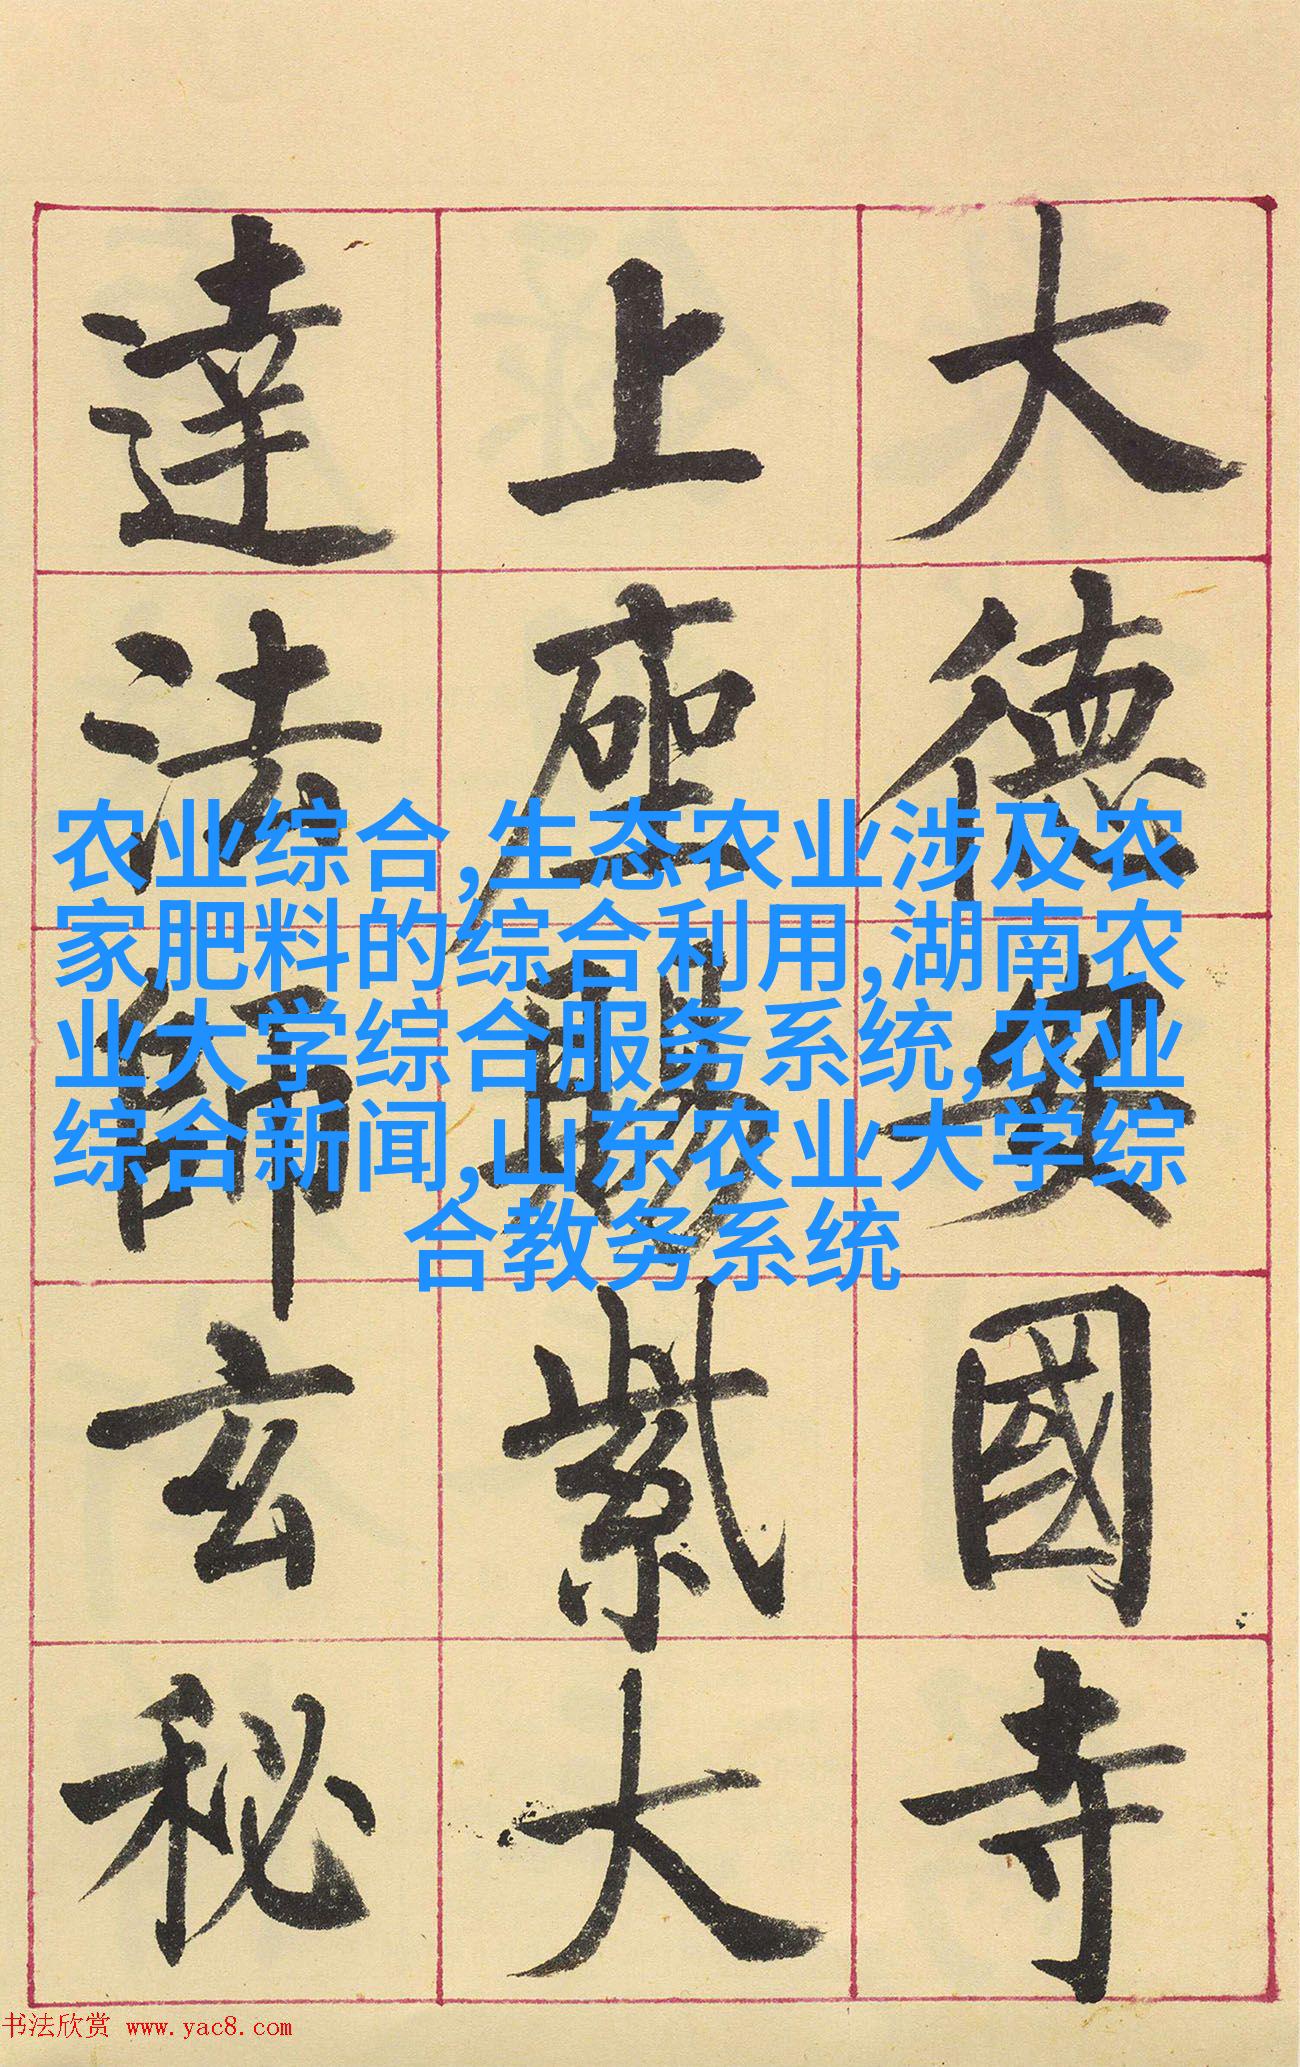 大德安國寺
上座賜紫大
達法師玄秘
农业综合,生态农业涉及农
家肥料的综合利用,湖南农
业大学综合服务系统,农业
综合新闻,山东农业大学综
合教务系统
书法欣赏 www.yac8.com